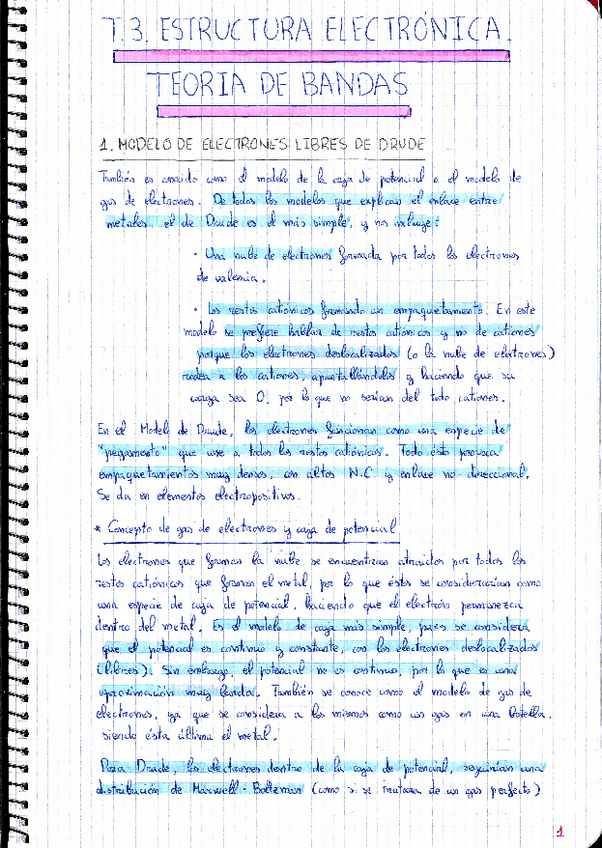 T.3. ESTRUCTURA ELECTRÓNICA.
TEORIA DE BANDAS
1. MODELO DE ELECTRONES LIBRES DE DRUDE
También es conocido como el modelo de la caja de potencial o el modelo de
gas de electrones. De todos los modelos que explican el enlace entre
metales, el de Drude es el más simple, y nos incluye:
· Una nube de electrones formada por todos los electrones
de valencia.
· Los restos catiónicos formando un empaquetamiento. En este
modelo se prefiere hablar de restos catiónicos y no de cationes
porque los electrones deslocalizados (o la nube de electrones)
rodea a los cationes, apantallándolos y haciendo que su
carga sea 0, por lo que no serían del todo cationes.
En el Modelo de Drude, los electrones funcionan como una especie de
"pegamento" que une a todos los restos catiónicos. Todo ésto provoca
empaquetamientos muy densos, con altos N.C y enlace no-direccional.
Se da en elementos electropositivos.
* Concepto de gas de electrones y caja de potencial
Los electrones que forman la nube se encuentran atraídos por todos los
restos catiónicos que forman el metal, por lo que éstos se considerarían como
una especie de caja de potencial, haciendo que el electrón permanezca
dentro del metal. Es el modelo de caja más simple, pues se considera
que el potencial es continuo y constante, con los electrones deslocalizados
(libres). Sin embargo, el potencial no es continuo, por lo que es una
aproximación muy burda. También se conoce como el modelo de gas de
electrones, ya que se considera a los mismos como un gas en una botella,
siendo ésta última el metal.
Para Drude, los electrones dentro de la caja de potencial, seguirían una
distribución de Maxwell-Boltzman (como si se tratara de un gas perfecto)
1